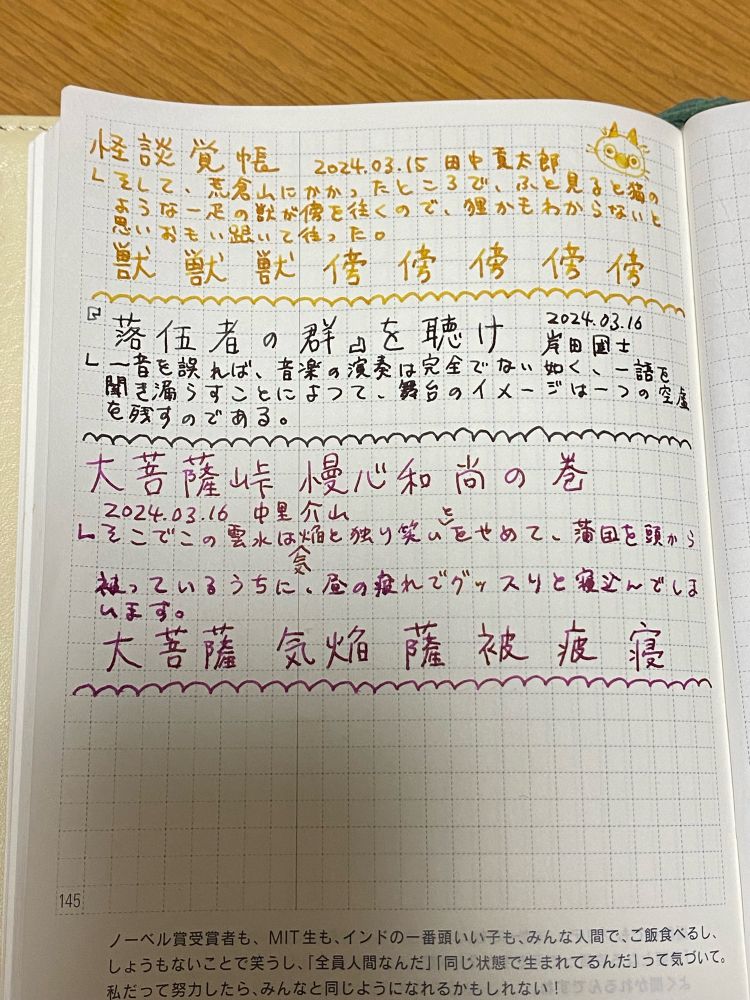 怪談覚帳 2024.03.15 田中貢太郎
そして、荒倉山にかかったところで、ふと見ると猫の
ような一疋の獣が傍を往くので、狸かもわからないと
思いおもい跟いて往った。
獣 獣 獣 傍 傍 傍 傍 傍
『落伍者の群』を聴け 2024.03.16
岸田國士
一音を誤れば、音楽の演奏は完全でない如く、一語を
聞き漏らすことによって、舞台のイメージは一つの空虚
を残すのである。
大菩薩峠 慢心和尚の巻
2024.03.16 中里介山
そこでこの雲水は気焔と独り笑いとをやめて、蒲団を頭から
被っているうちに、昼の疲れでグッスリと寝込んでしま
います。
大菩薩 気焔 薩 被 疲 寝
145
ノーベル賞受賞者も、MIT生も、インドの一番頭いい子も、みんな人間で、ご飯食べるし、
しょうもないことで笑うし、「全員人間なんだ」「同じ状態で生まれてるんだ」って気づいて。
私だって努力したら、みんなと同じようになれるかもしれない!